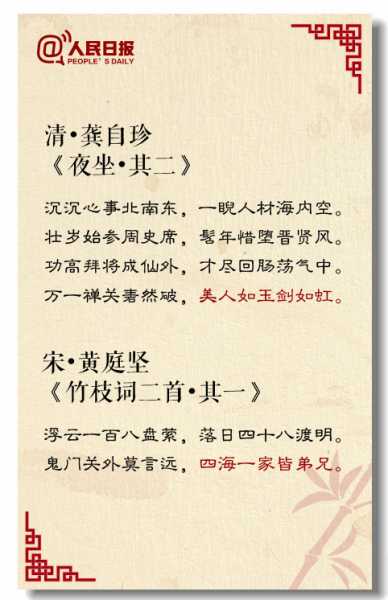 @人民日报
PEOPLE'S DAILY
清·龚自珍
《夜坐·其二》
沉沉心事北南东，一睨人材海内空。
壮岁始参周史席，髫年惜堕晋贤风。
功高拜将成仙外，才尽回肠荡气中。
万一禅关砉然破，美人如玉剑如虹。
宋·黄庭坚
《竹枝词二首·其一》
浮云一百八盘萦，落日四十八渡明。
鬼门关外莫言远，四海一家皆弟兄。